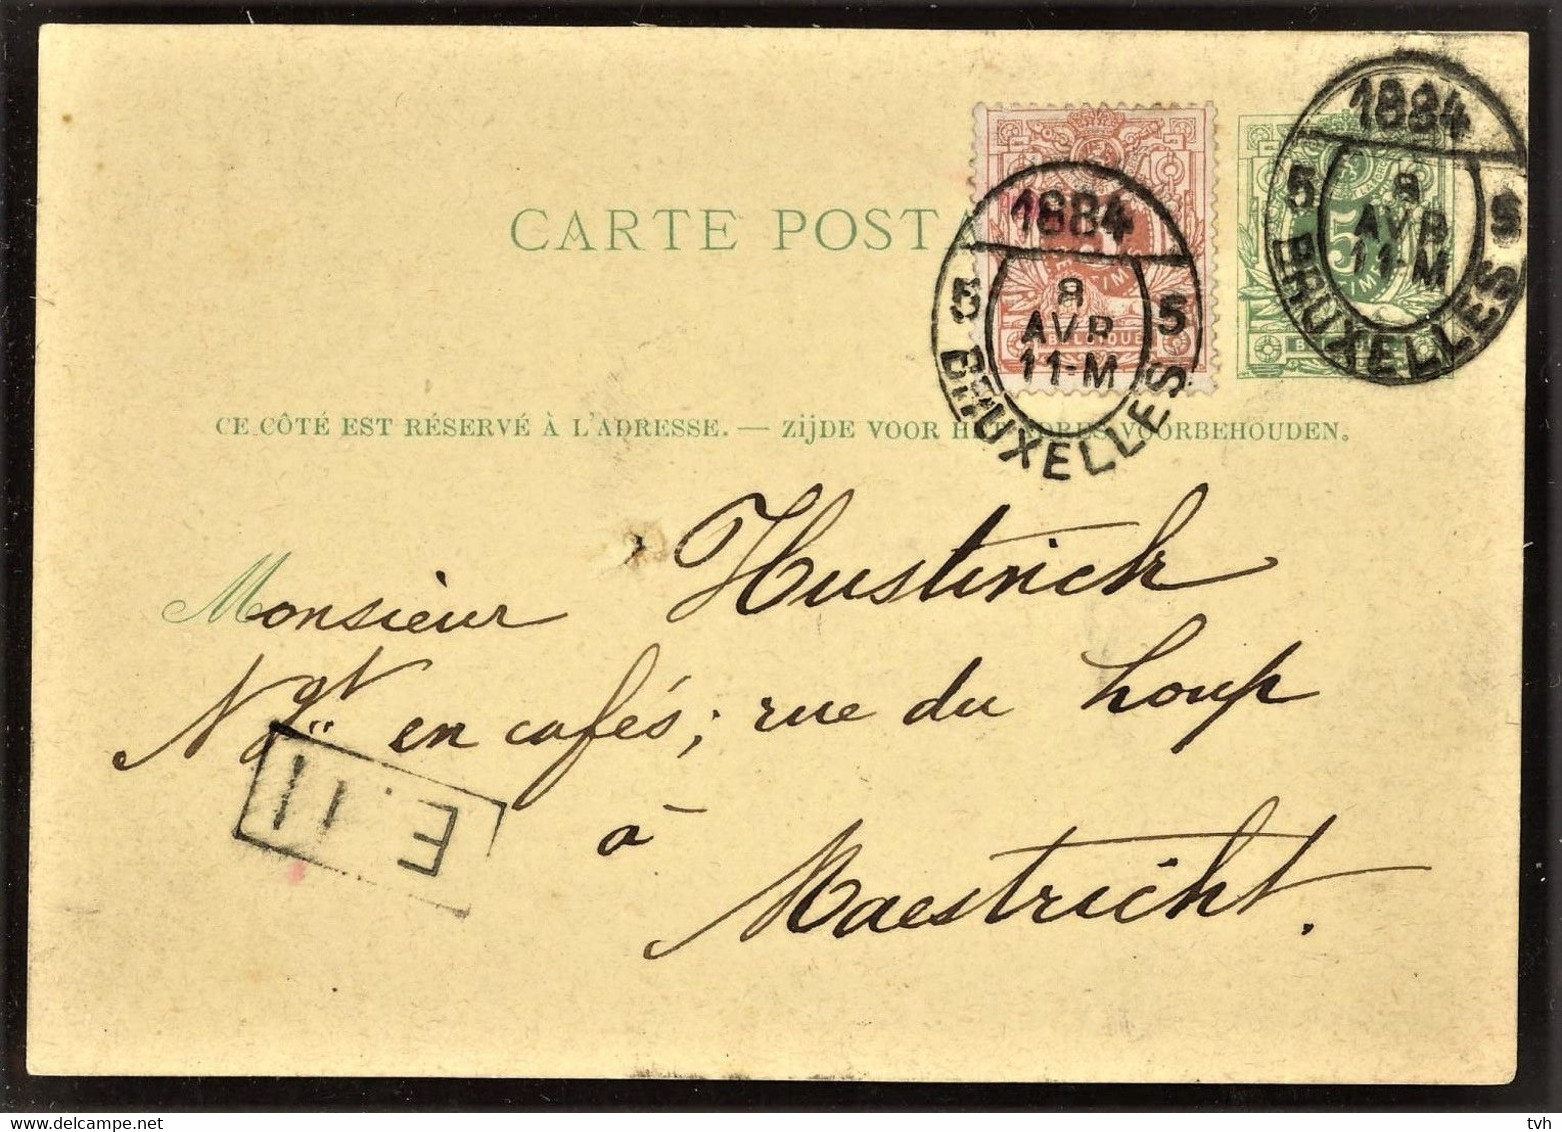 CARTE POSTA
1884
5 8 5
AVR
11-M
BRUXELLES
BELGIQUE
1884
5 8 5
AVR
11-M
BRUXELLES
CE CÔTÉ EST RÉSERVÉ À L'ADRESSE. — ZIJDE VOOR HET ADRES VOORBEHOUDEN.
Monsieur Hustinck
Ngt en cafés; rue du Loup
à
Maestricht.
E. 11
tvh